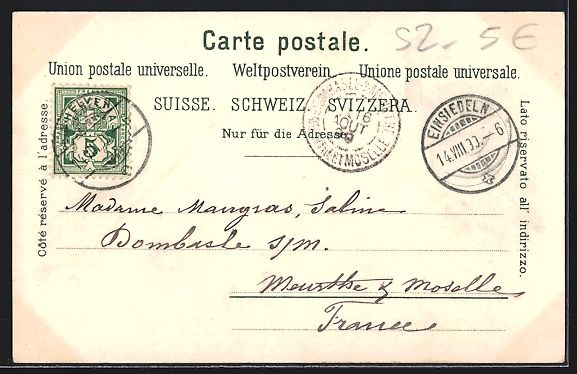 Carte postale.
SZ. 5 €
Union postale universelle. Weltpostverein. Unione postale universale.
SUISSE. SCHWEIZ. SVIZZERA.
Nur für die Adresse.
Côté réservé à l'adresse.
Lato riservato all' indirizzo.
5
16
AOUT
EINSIEDELN
14.VIII.99.–6
Madame Maugras, Sabine
Dombasle s/m.
Meurthe & Moselle
France